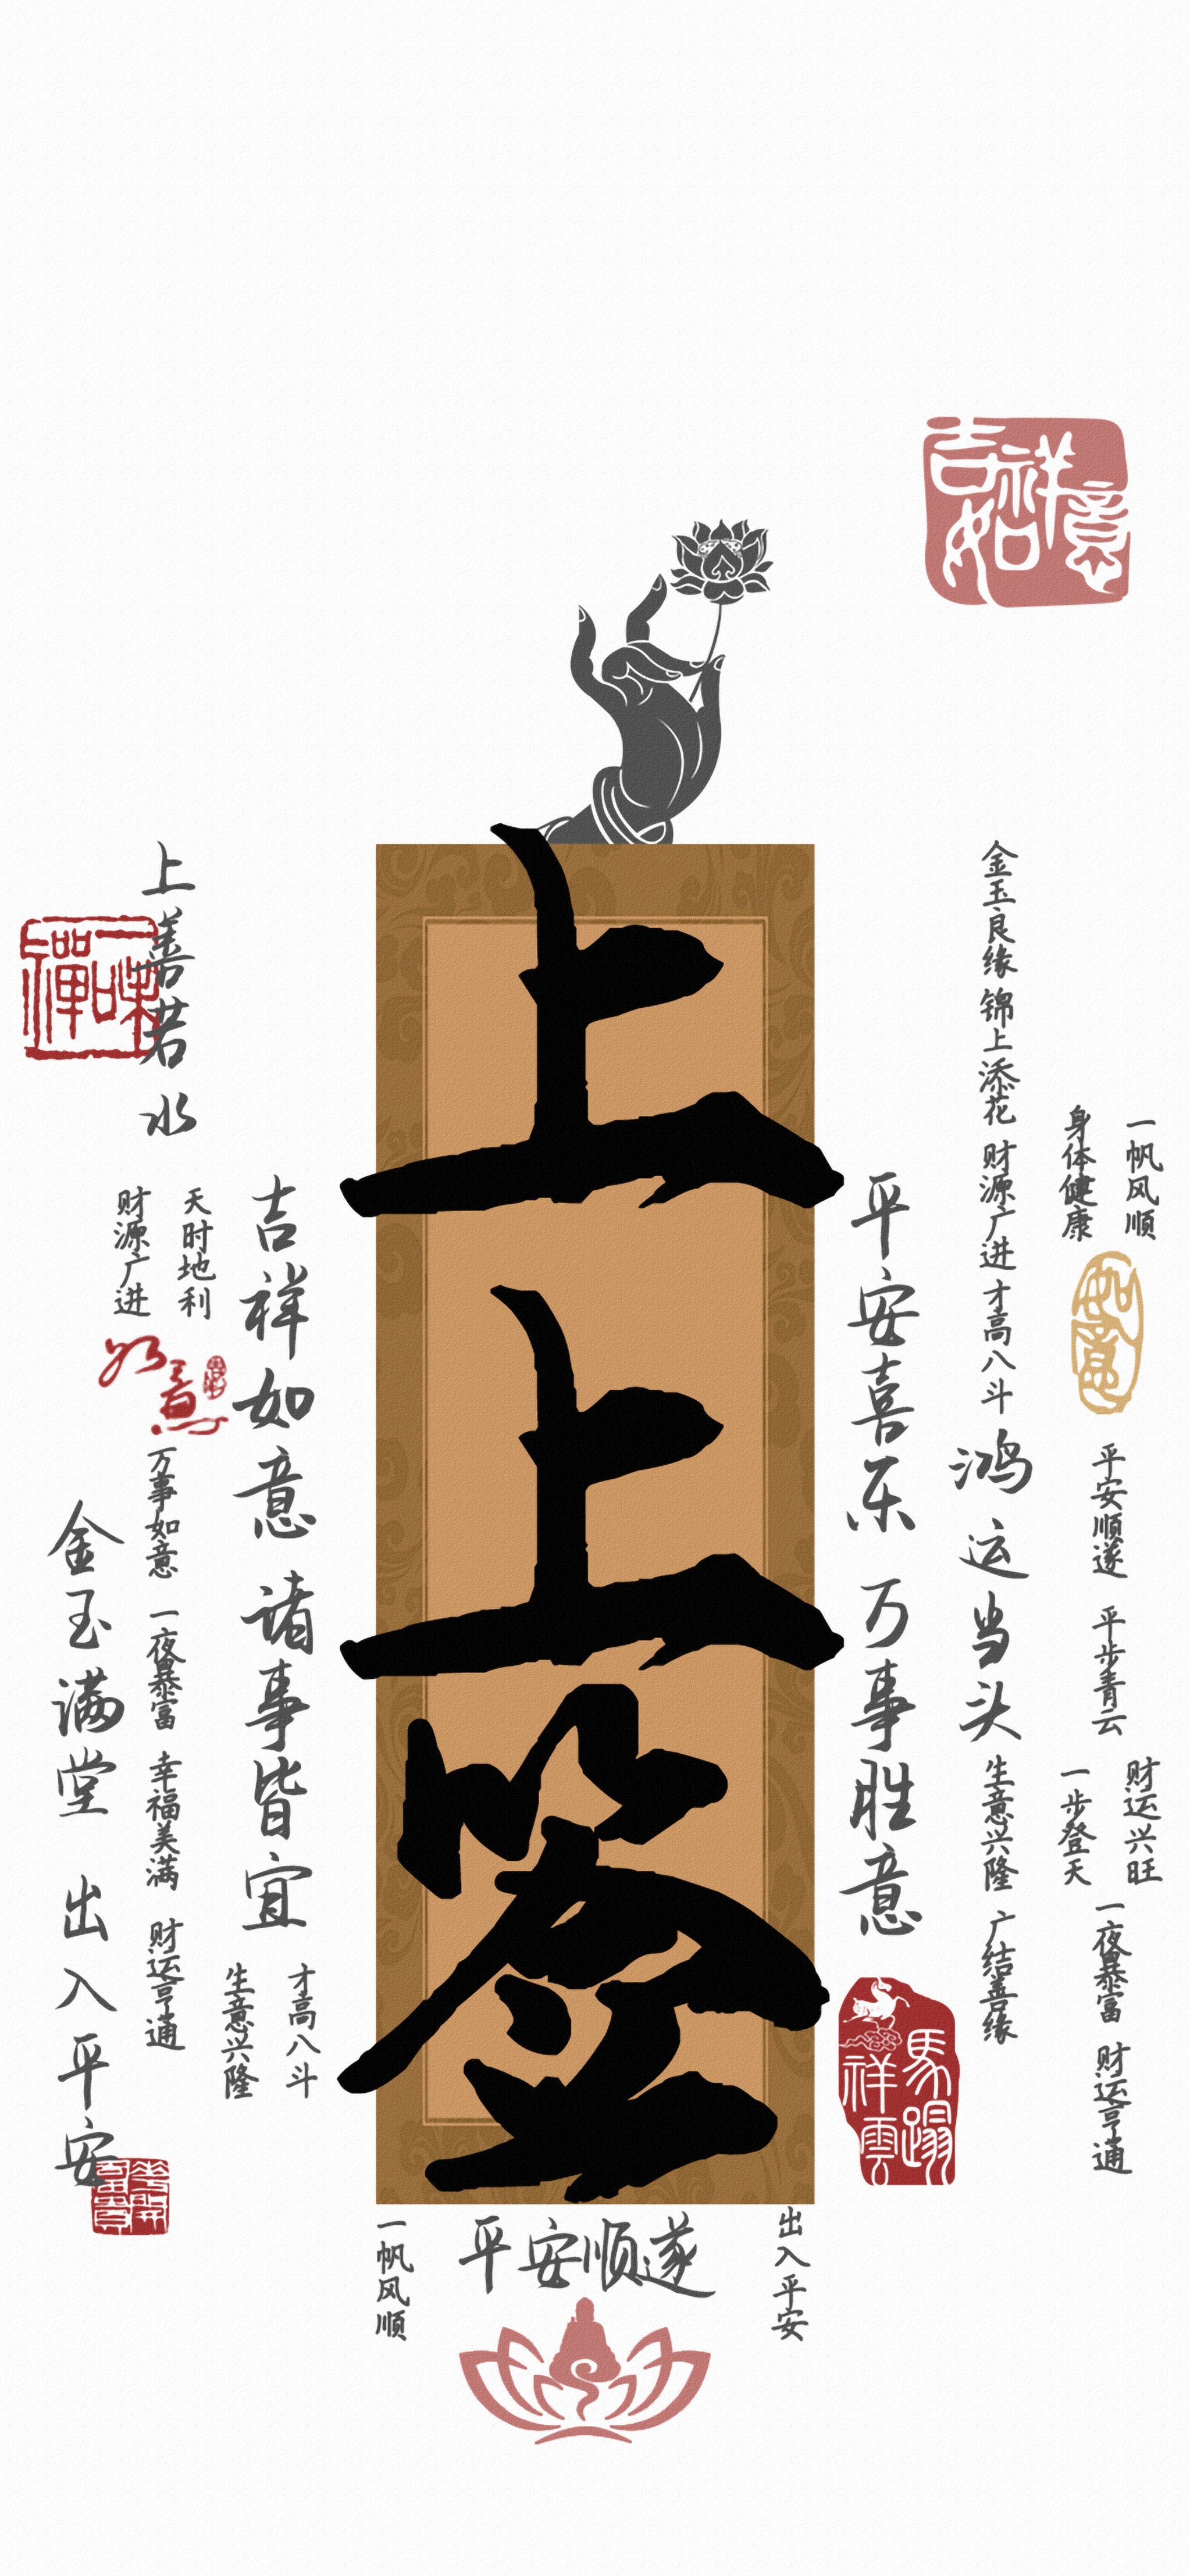 吉祥如意
上上签
上善若水
一味禅
天时地利
财源广进
如意
万事如意 一夜暴富 幸福美满 财运亨通
吉祥如意 诸事皆宜
才高八斗
生意兴隆
金玉满堂 出入平安
平安喜乐 万事胜意
馬踏祥雲
金玉良缘 锦上添花 财源广进 才高八斗
鸿运当头
生意兴隆 广结善缘
一帆风顺
身体健康
如意
平安顺遂 平步青云
财运兴旺
一步登天
一夜暴富 财运亨通
一帆风顺
平安顺遂
出入平安